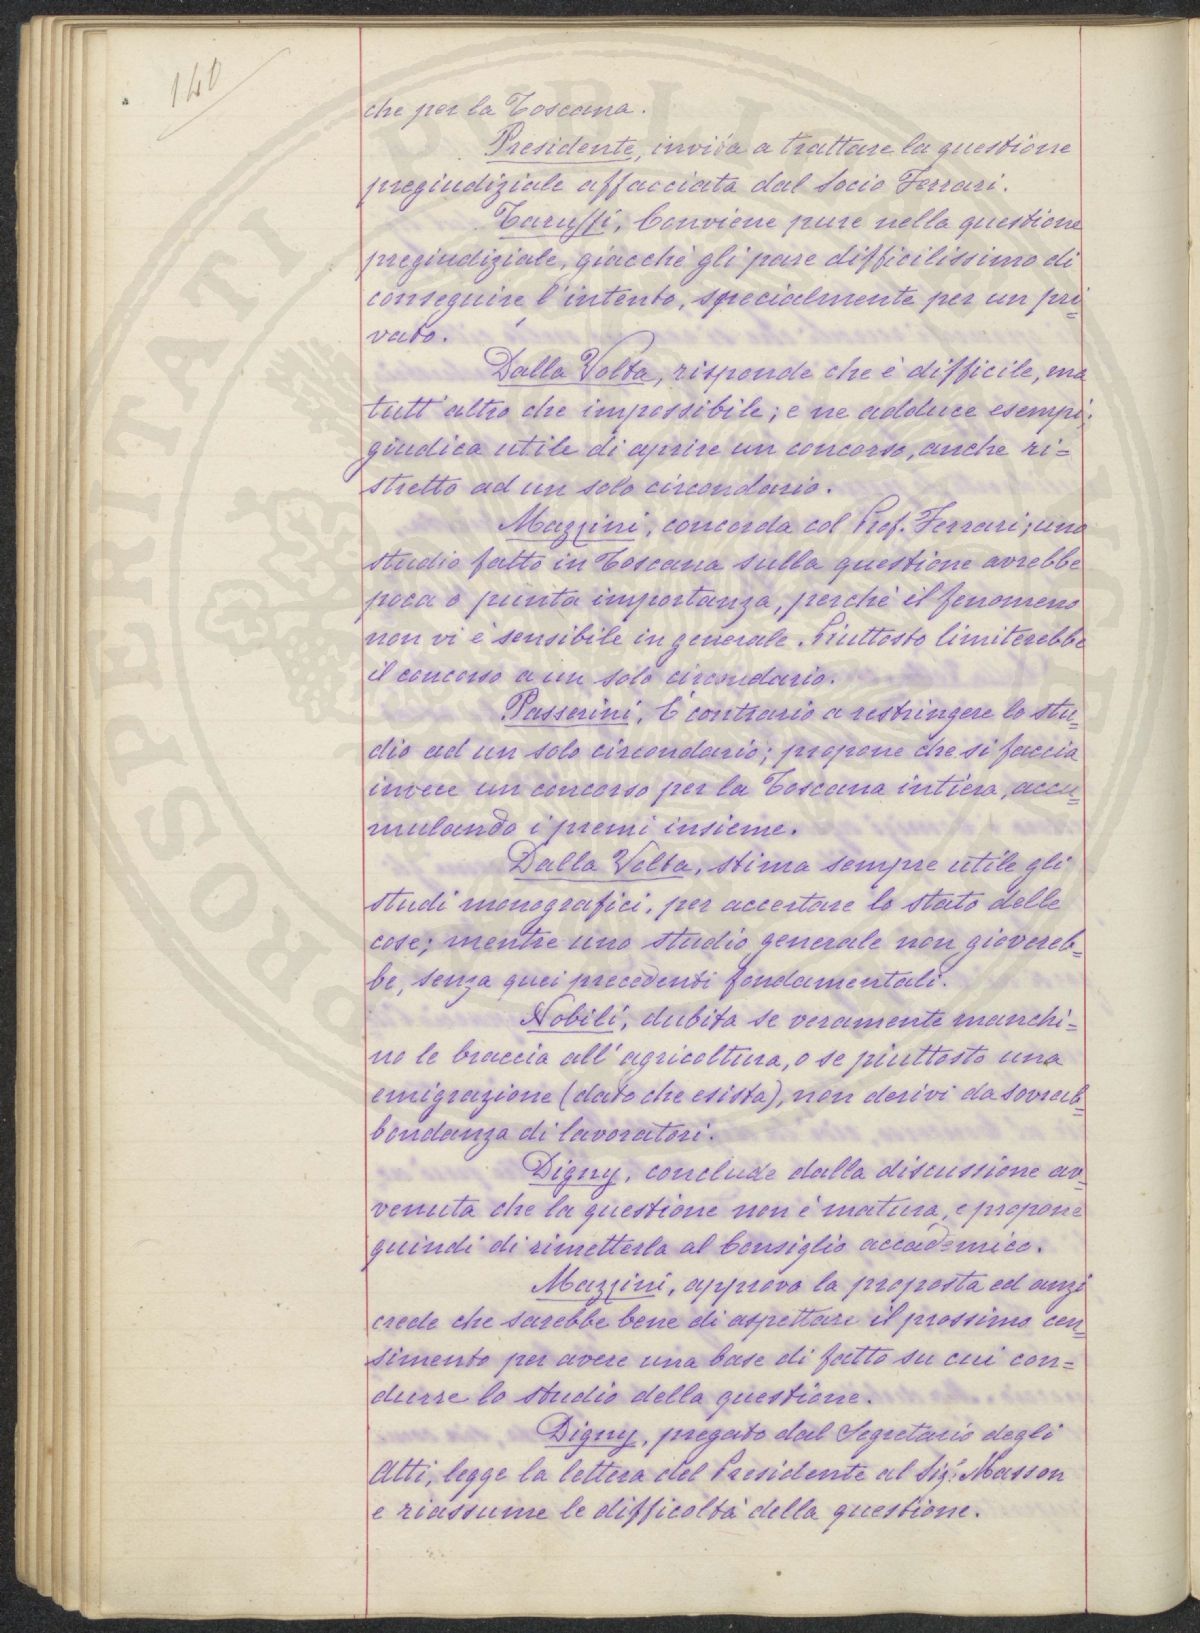 140
che per la Toscana.
Presidente, invita a trattare la questione
pregiudiziale affacciata dal Socio Ferrari.
Taruffi, Conviene pure nella questione
pregiudiziale, giacchè gli pare difficilissimo di
conseguire l'intento, specialmente per un pri=
vato.
Dalla Volta, risponde che è difficile, ma
tutt'altro che impossibile; e ne adduce esempi;
giudica utile di aprire un concorso, anche ri=
stretto ad un solo circondario.
Mazzini, concorda col Prof. Ferrari; uno
studio fatto in Toscana sulla questione avrebbe
poca o punta importanza, perchè il fenomeno
non vi è sensibile in generale. Piuttosto limiterebbe
il concorso a un solo circondario.
Passerini, È contrario a restringere lo stu=
dio ad un solo circondario; propone che si faccia
invece un concorso per la Toscana intiera, accu=
mulando i premi insieme.
Dalla Volta, stima sempre utile gli
studi monografici, per accertare lo stato delle
cose; mentre uno studio generale non gioverab=
be, senza quei precedenti fondamentali.
Nobili, dubita se veramente manchi=
no le braccia all'agricoltura, o se piuttosto una
emigrazione (dato che esista), non derivi da sovrab=
bondanza di lavoratori.
Digny, conclude dalla discussione av=
venuta che la questione non è matura, e propone
quindi di rimetterla al Consiglio accademico.
Mazzini, approva la proposta ed anzi
crede che sarebbe bene di aspettare il prossimo cen=
simento per avere una base di fatto su cui con=
durre lo studio della questione.
Digny, pregato dal Segretario degli
Atti, legge la lettera del Presidente al Sig.r Masson
e riassume le difficoltà della questione.
PROSPERITATI PUBLICAE AUGENDAE